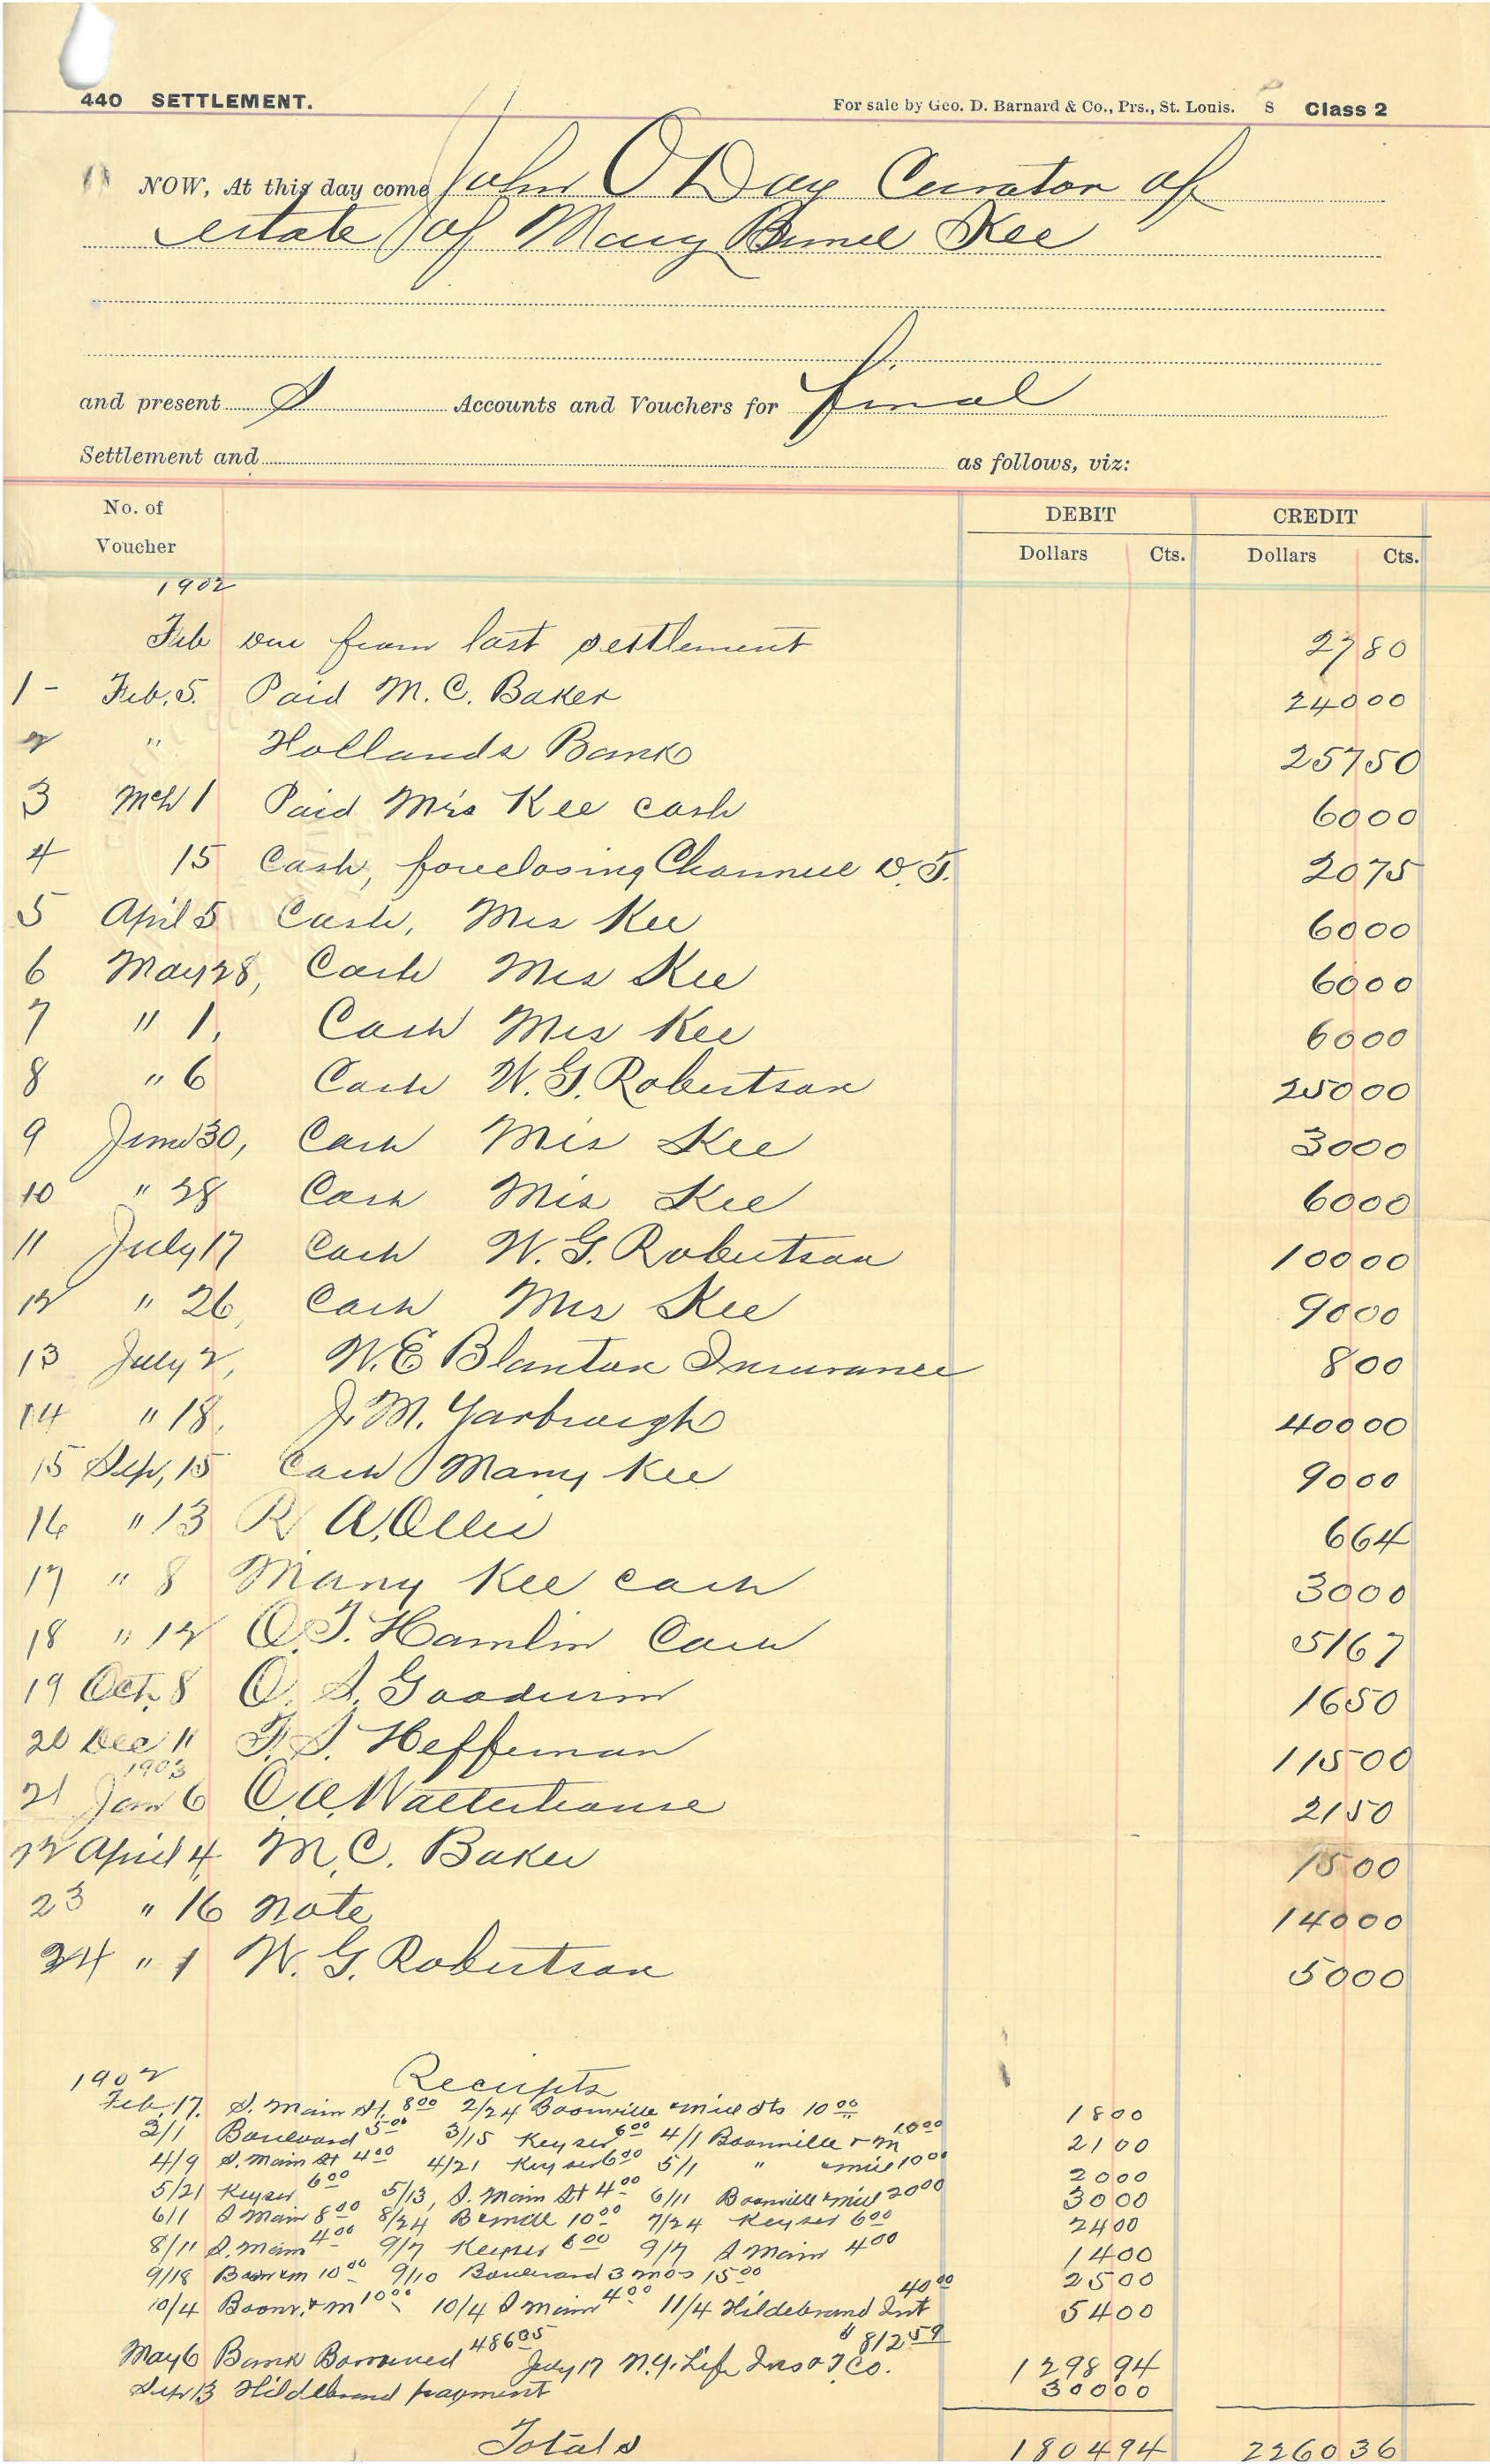 440 SETTLEMENT. For sale by Geo. D. Barnard & Co., Prs., St. Louis. S Class 2
NOW, At this day come John O Day Curator of
estate of Mary Bunel Kee
and present S Accounts and Vouchers for final
Settlement and as follows, viz:
No. of Voucher DEBIT CREDIT
Dollars Cts. Dollars Cts.
1902
Feb Due from last settlement 27 80
1 - Feb. 5. Paid M. C. Baker 240 00
2 " Hollands Bank 257 50
3 Mch 1 Paid Mrs Kee cash 60 00
4 15 Cash, foreclosing Channel D. T. 20 75
5 April 5 Cash, Mrs Kee 60 00
6 May 28, Cash Mrs Kee 60 00
7 " 1, Cash Mrs Kee 60 00
8 " 6 Cash W. G. Robertson 250 00
9 June 30, Cash Mrs Kee 30 00
10 " 28 Cash Mrs Kee 60 00
11 July 17 Cash W. G. Robertson 100 00
12 " 26, Cash Mrs Kee 90 00
13 July 2, W. E Blanton Insurance 8 00
14 " 18, J. M. Yarbrough 400 00
15 Sep, 15 Cash Mary Kee 90 00
16 " 13 R A. Ollis 6 64
17 " 8 Mary Kee cash 30 00
18 " 12 O. T. Hamlin Cash 51 67
19 Oct. 8 O. S. Goodwin 16 50
20 Dec 11 F. S. Heffernan 115 00
1903
21 Jan 6 C. A. Watterhouse 21 50
22 April 4, M. C. Baker 15 00
23 " 16 Note 140 00
24 " 1 W. G. Robertson 50 00
1902 Receipts
Feb. 17. S. Main St. 8 00 2/24 Boonville & Mill Sts 10 00 18 00
3/1 Boulevard 5 00 3/15 Keyser 6 00 4/1 Boonville & M 10 00 21 00
4/9 S. Main St 4 00 4/21 Keyser 6 00 5/1 " & Mill 10 00 20 00
5/21 Keyser 6 00 5/13, S. Main St 4 00 6/11 Boonville & Mill 20 00 30 00
6/1 S Main 8 00 8/24 B & Mill 10 00 7/24 Keyser 6 00 24 00
8/11 S. Main 4 00 9/7 Keyser 6 00 9/7 S Main 4 00 14 00
9/18 Boon & m 10 00 9/10 Boulevard 3 mos 15 00 25 00
10/4 Boonv. & M 10 00 10/4 S Main 4 00 11/4 Hildebrand Int 40 00 54 00
May 6 Bank Borrowed 486 35 July 17 N. Y. Life Ins & T Co. $ 812 59 1298 94
Sep 13 Hildebrand payment 300 00
Totals 1804 94 2260 36